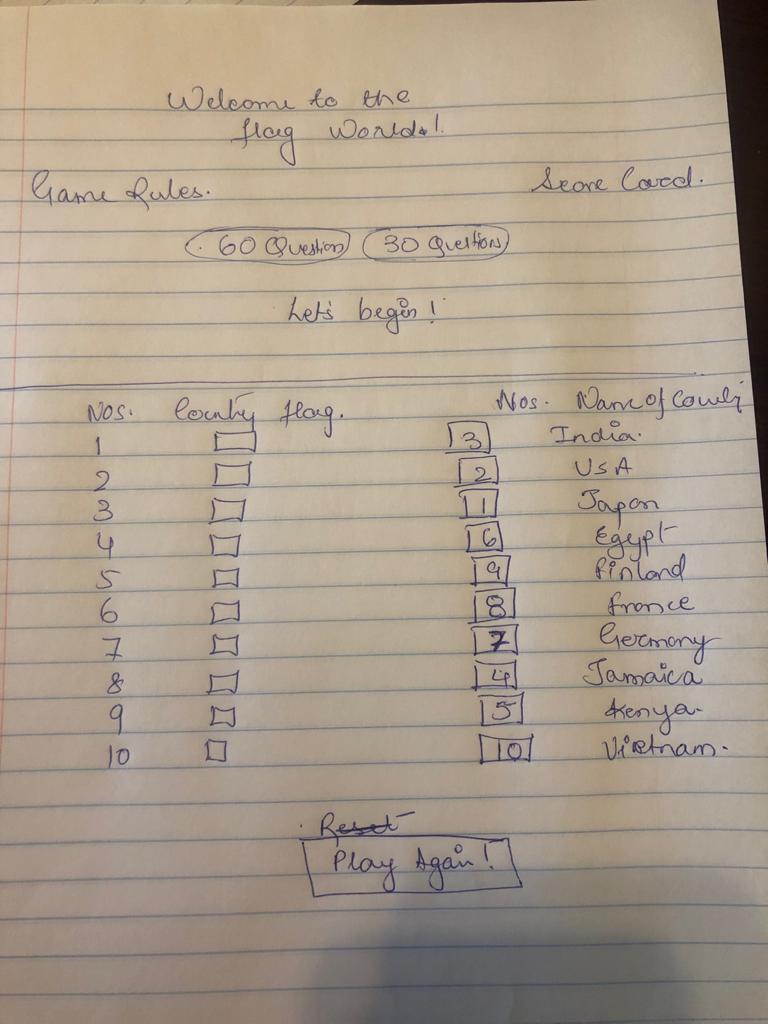 Welcome to the
flag World!
Game Rules. Score Card.
60 Question 30 Questions
Let's begin!
Nos. County flag. Nos. Name of County
1 3 India.
2 2 USA
3 1 Japan
4 6 Egypt
5 9 finland
6 8 france
7 7 Germany
8 4 Jamaica
9 5 Kenya.
10 10 Vietnam.
Reset
Play Again!